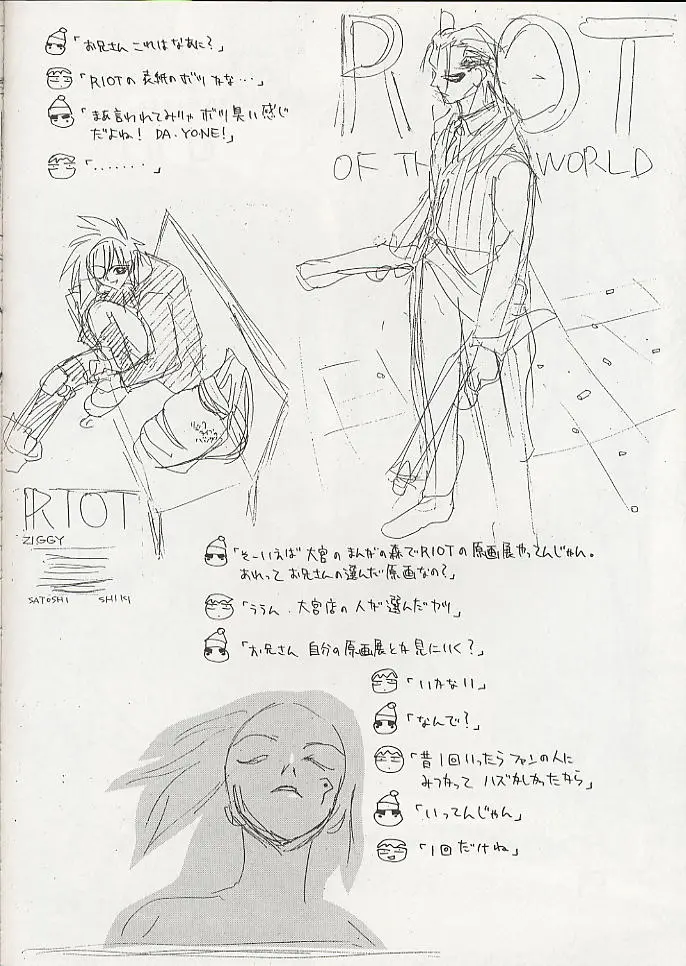 「お兄さん これはなあに？」
「RIOTの表紙のボツかな・・・」
「まあ言われてみりゃボツ臭い感じ
だよね! DA.YONE!」
「・・・・・・・」
RIOT
OF THE WORLD
RIOT
ZIGGY
SATOSHI SHIKI
「そーいえば大宮のまんがの森でRIOTの原画展やってんじゃん。
あれってお兄さんの選んだ原画なの？」
「ううん、大宮店の人が選んだヤツ」
「お兄さん 自分の原画展とか見にいく？」
「いかない」
「なんで？」
「昔1回いったらファンの人に
みつかって ハズかしかったから」
「いってんじゃん」
「1回だけね」